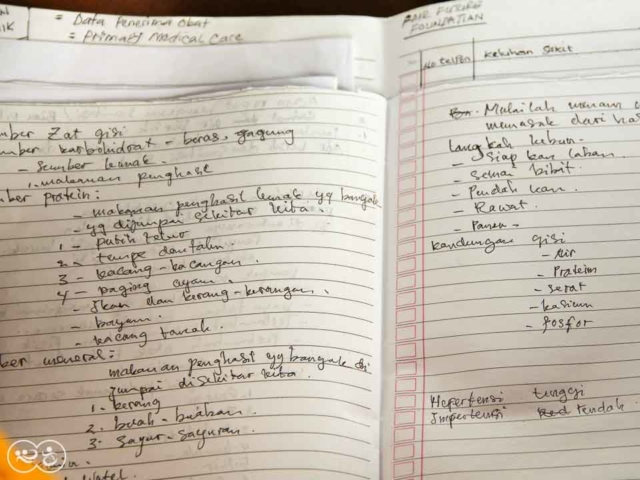 = Data Penerima Obat
= Primary Medical Care
IK
mber Zat gisi
mber karbohidrat - beras, gagung
- Sember lemak.
makanan penghasil
ber Protein:
- makanan penghasil lemak yg banyak
- yg dijumpai sekitar kita.
1 - putih telur
2 - tempe dan tahu.
3 - kacang-kacangan.
4 - daging ayam.
- Ikan dan kerang-kerangan.
- bayam.
- kacang tanah.
ber meneral:
makanan penghasil yg banyak di
jumpai disekitar kita.
1. kerang
2. buah-buahan.
3. sayur-sayuran.
Wotel
FAIR FUTURE
FOUNDATION
No telpon
keluhan sakit
- Mulailah menam
memasak dari has
Langkah kebun.
- Siap kan lahan.
- Semai bibit.
- Pindah kan.
- Rawat.
- Panen.
kandungan gisi
- Air
- Protein
- serat
- kasium
- fosfor
Hepertensi tinggi
Impertensi rendah.